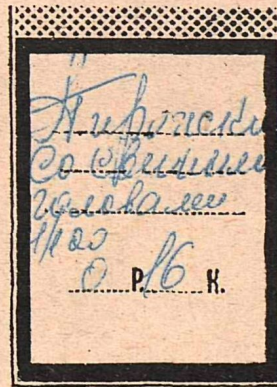 Пирожки
со свиными
головами
1/100
0 Р. 16 К.